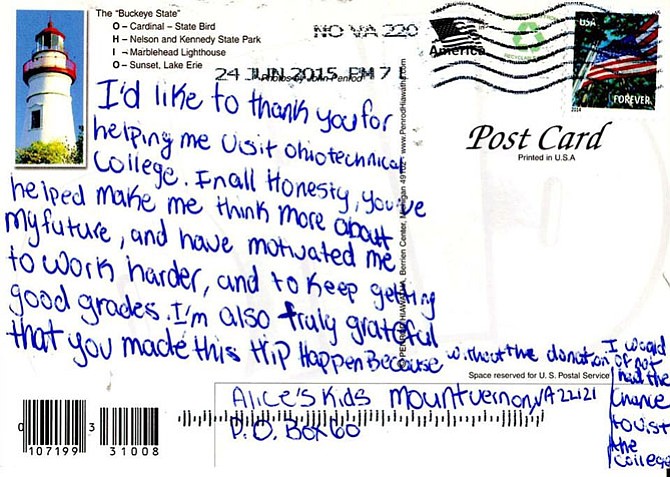 The "Buckeye State"
O – Cardinal – State Bird
H – Nelson and Kennedy State Park
I – Marblehead Lighthouse
O – Sunset, Lake Erie
Photos by John Penrod
NO VA 220
24 JUN 2015 PM 7 L
America
RECYCLABLE
USA
FOREVER
2014
Post Card
Printed in U.S.A
I'd like to thank you for
helping me visit Ohiotechnical
College. In all Honesty, you've
helped make me think more about
My future, and have motivated me
to work harder, and to keep getting
good grades. I'm also truly grateful
that you made this Hip Happen Because without the donation I would
of not
had the
Chance
to visit
the
College
©PENROD/HIAWATHA, Berrien Center, Michigan 49102 www.PenrodHiawatha.com
Space reserved for U. S. Postal Service
Alice's Kids Mount vernon, VA 22121
P.O. Box 60
0 107199 3 31008